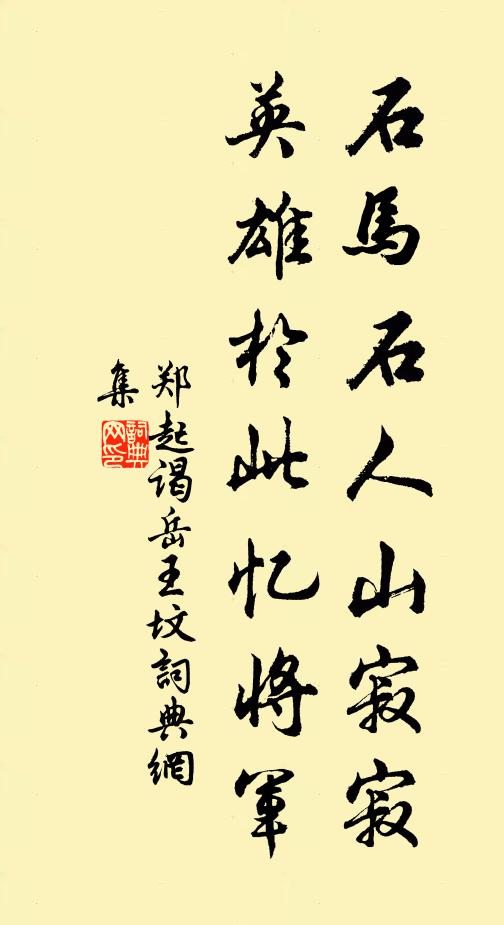 石馬石人山寂寂
英雄於此忆將軍
郑起谒岳王坟詞典網
集
詞典
网印